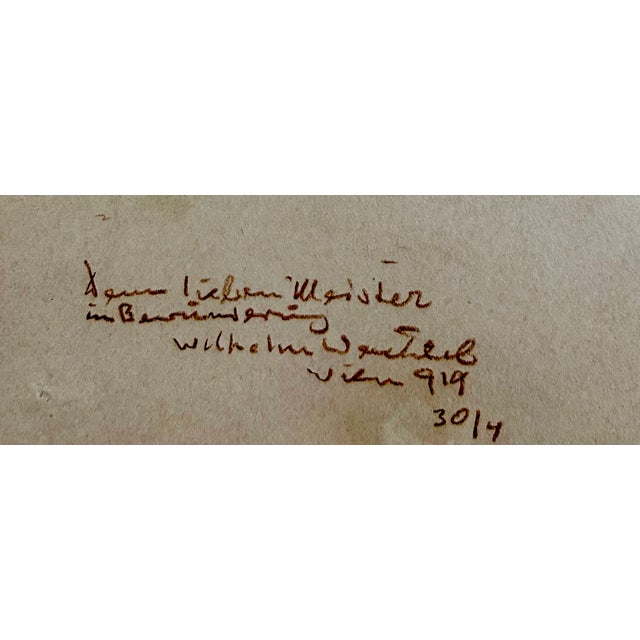 Dem lieben Meister
in Bewunderung
Wilhelm
Wien 919
30/4